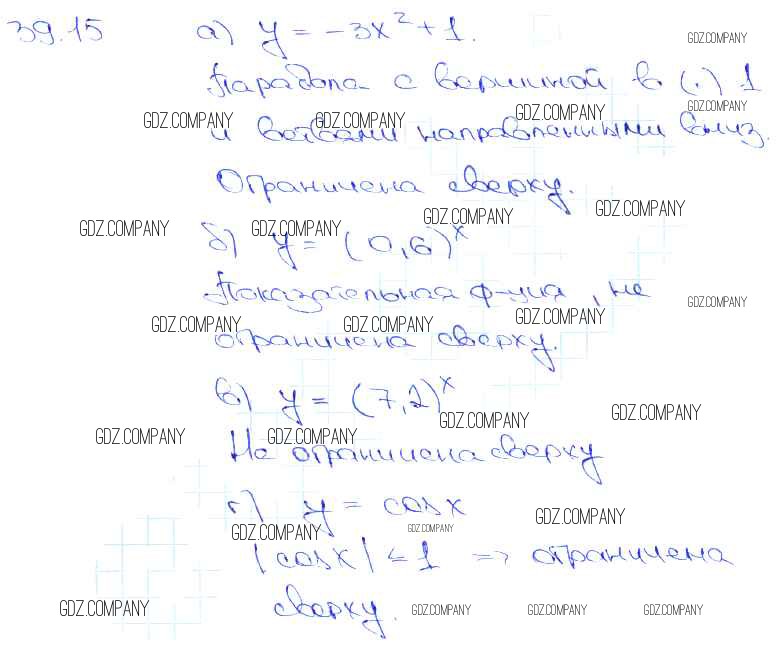 39.15 а) y = -3x² + 1.
GDZ.COMPANY
Парабола с вершиной в (.) 1
GDZ.COMPANY
GDZ.COMPANY GDZ.COMPANY GDZ.COMPANY
и ветвями направленными вниз.
Ограничена сверху.
GDZ.COMPANY GDZ.COMPANY GDZ.COMPANY GDZ.COMPANY
б) y = (0,6)ˣ
Показательная ф-ция, не
GDZ.COMPANY
GDZ.COMPANY GDZ.COMPANY GDZ.COMPANY
ограничена сверху.
в) y = (7,2)ˣ
GDZ.COMPANY GDZ.COMPANY
GDZ.COMPANY GDZ.COMPANY
Не ограничена сверху
г) y = cosx
GDZ.COMPANY GDZ.COMPANY GDZ.COMPANY
|cosx| ≤ 1 => ограничена
сверху.
GDZ.COMPANY GDZ.COMPANY GDZ.COMPANY GDZ.COMPANY